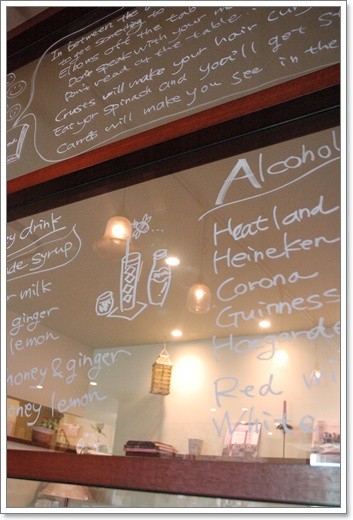 In between the
to get something to
Elbows off the tab
Don't speak with your m
Don't reach out the table
Crusts will make your hair cur
Eat your spinach and you'll get st
Carrots will make you see in the
Alcohol
Heatland
Heineken
Corona
Guinness
Hoegarde
Red wi
White
y drink
de syrup
r milk
ginger
lemon
honey & ginger
oney lemon